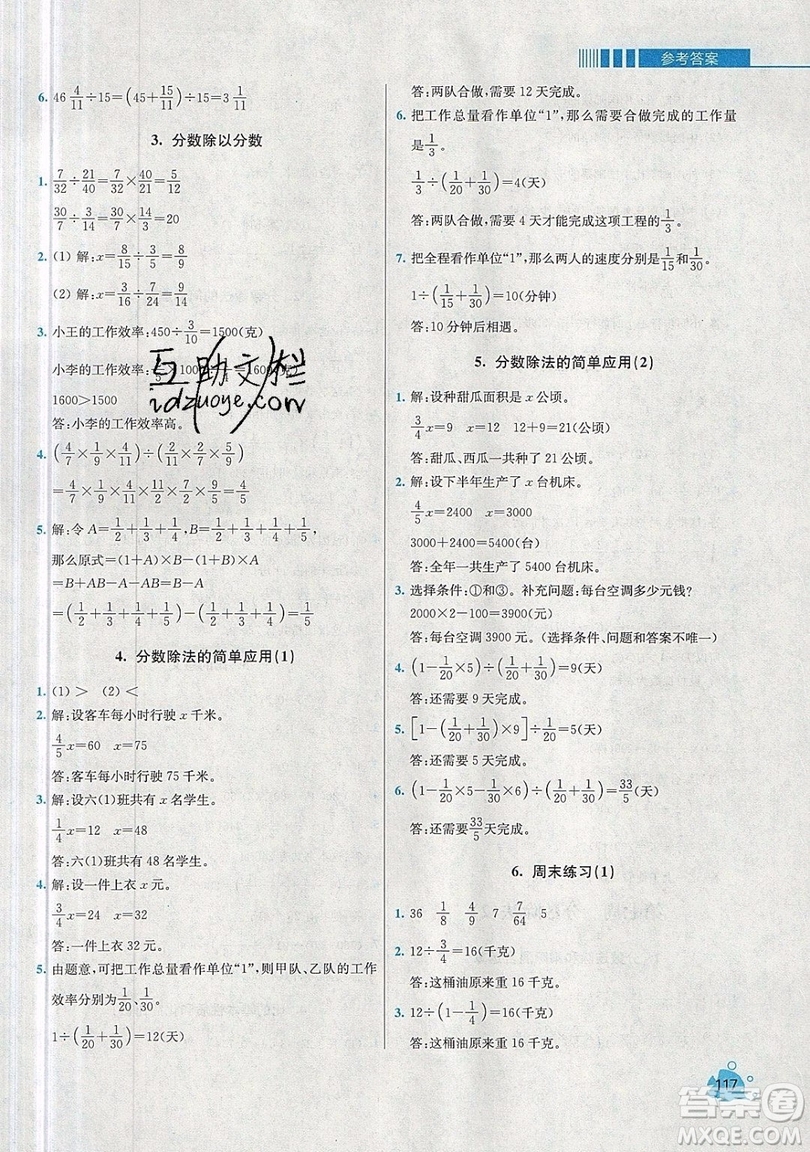 参考答案
6. 46 4/11÷15=(45+15/11)÷15=3 1/11
3. 分数除以分数
1. 7/32÷21/40=7/32×40/21=5/12
30/7÷3/14=30/7×14/3=20
2. (1) 解:x=8/15÷3/5=8/9
(2) 解:x=3/16÷7/24=9/14
3. 小王的工作效率:450÷3/10=1500(克)
小李的工作效率:
1600>1500
答:小李的工作效率高。
4. (4/7×1/9×4/11)÷(2/11×2/7×5/9)
=4/7×1/9×4/11×11/2×7/2×9/5=4/5
5. 解:令A=1/2+1/3+1/4,B=1/2+1/3+1/4+1/5,
那么原式=(1+A)×B-(1+B)×A
=B+AB-A-AB=B-A
=(1/2+1/3+1/4+1/5)-(1/2+1/3+1/4)=1/5
4. 分数除法的简单应用(1)
1. (1) > (2) <
2. 解:设客车每小时行驶 x 千米。
4/5x=60 x=75
答:客车每小时行驶 75 千米。
3. 解:设六(1)班共有 x 名学生。
1/4x=12 x=48
答:六(1)班共有 48 名学生。
4. 解:设一件上衣 x 元。
3/4x=24 x=32
答:一件上衣 32 元。
5. 由题意,可把工作总量看作单位“1”,则甲队、乙队的工作
效率分别为1/20、1/30。
1÷(1/20+1/30)=12(天)
答:两队合做,需要 12 天完成。
6. 把工作总量看作单位“1”,那么需要合做完成的工作量
是1/3。
1/3÷(1/20+1/30)=4(天)
答:两队合做,需要 4 天才能完成这项工程的1/3。
7. 把全程看作单位“1”,那么两人的速度分别是1/15和1/30。
1÷(1/15+1/30)=10(分钟)
答:10 分钟后相遇。
5. 分数除法的简单应用(2)
1. 解:设种甜瓜面积是 x 公顷。
3/4x=9 x=12 12+9=21(公顷)
答:甜瓜、西瓜一共种了 21 公顷。
2. 解:设下半年生产了 x 台机床。
4/5x=2400 x=3000
3000+2400=5400(台)
答:全年一共生产了 5400 台机床。
3. 选择条件:①和③。补充问题:每台空调多少元钱?
2000×2-100=3900(元)
答:每台空调 3900 元。(选择条件、问题和答案不唯一)
4. (1-1/20×5)÷(1/20+1/30)=9(天)
答:还需要 9 天完成。
5. [1-(1/20+1/30)×9]÷1/20=5(天)
答:还需要 5 天完成。
6. (1-1/20×5-1/30×6)÷(1/20+1/30)=33/5(天)
答:还需要33/5天完成。
6. 周末练习(1)
1. 36 1/8 4/9 7 7/64 5
2. 12÷3/4=16(千克)
答:这桶油原来重 16 千克。
3. 12÷(1-1/4)=16(千克)
答:这桶油原来重 16 千克。
117
互助文栏
idzuoye.com
答案圈
MXQE.COM